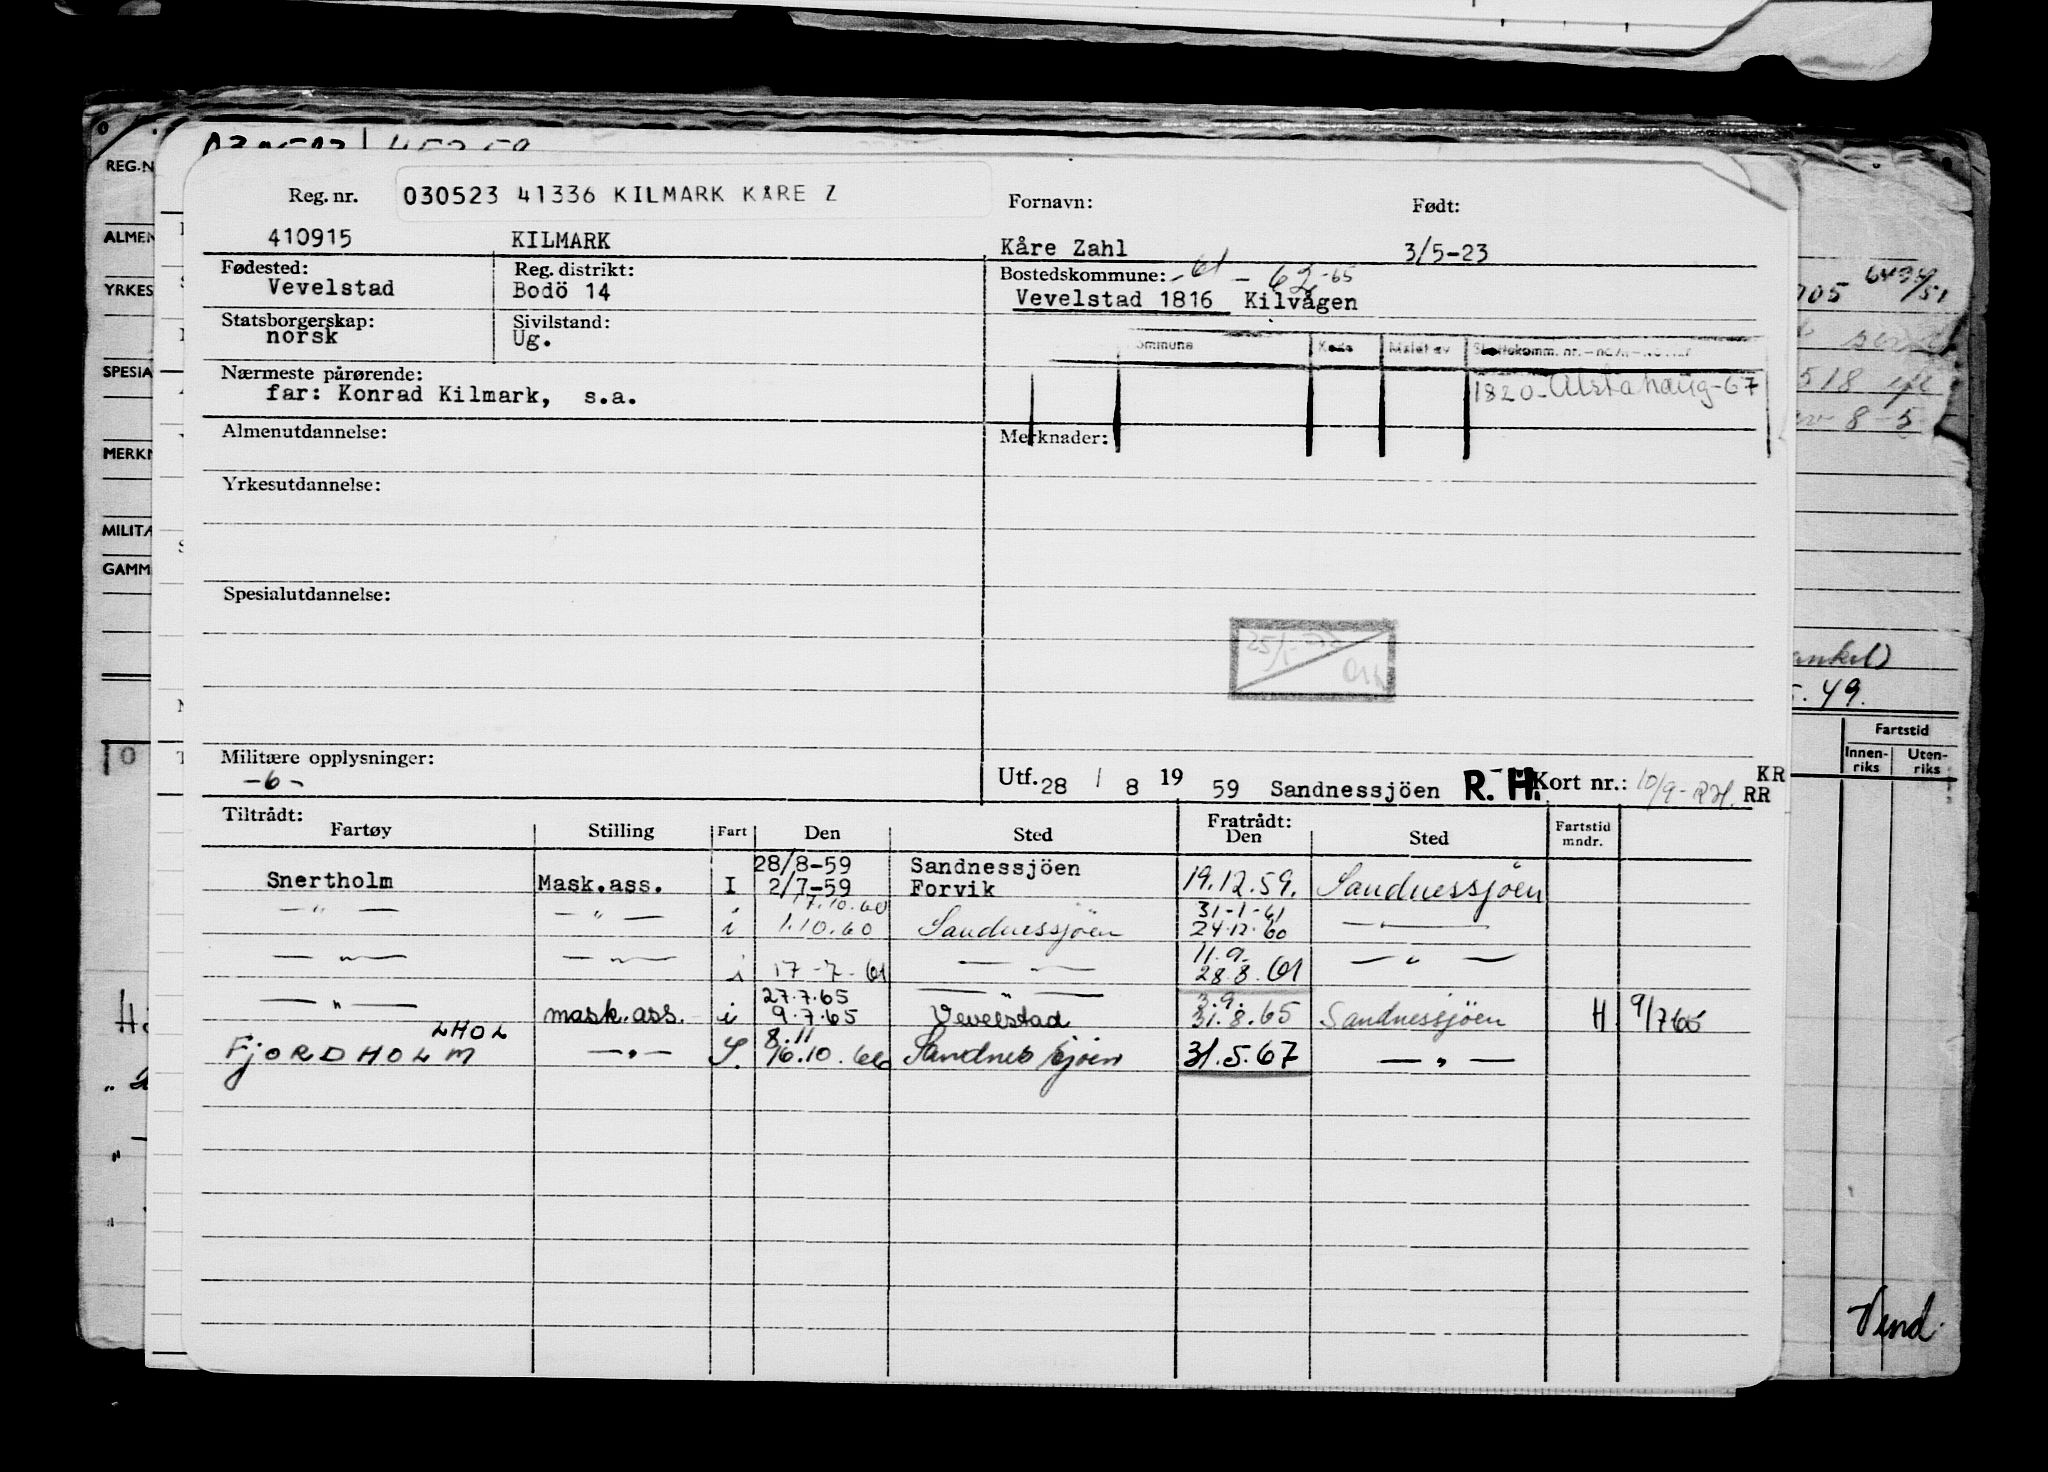 Reg. nr. 030523 41336 KILMARK KÅRE Z Fornavn: Født:
410915 KILMARK Kåre Zahl 3/5-23
Fødested: Reg. distrikt: Bostedskommune: -61 - 62 -65
Vevelstad Bodö 14 Vevelstad 1816 Kilvågen
Statsborgerskap: Sivilstand:
norsk Ug.
Nærmeste pårørende:
far: Konrad Kilmark, s.a. 1820-Alstahaug-67
Almenutdannelse: Merknader:
Yrkesutdannelse:
Spesialutdannelse:
Militære opplysninger:
-6-
Utf. 28 / 8 19 59 Sandnessjöen R. H. Kort nr.: 10/9- RH. KR
RR
Tiltrådt: Fratrådt:
Fartøy Stilling Fart Den Sted Den Sted Fartstid
mndr.
28/8-59 Sandnessjöen
Snertholm Mask.ass. I 2/7-59 Forvik 19.12.59. Sandnessjöen
7.10.60 31-1-61
— " — — " — i 1.10.60 Sandnessjöen 24.12.60 — —
11.9.
— " — — " — i 17-7-61 — " — 28.8.61 — " —
27.7.65 — " — 3.9.
— " — mask.ass. i 9.7.65 Vevelstad 31.8.65 Sandnessjöen H 9/765
LHOL 8.11
FJORDHOLM — " — S. 16.10.66 Sandnessjöen 31.5.67 — " —
REG.N
ALMEN
YRKES
SPESIA
MERKN
MILITA
GAMM
705
518
8-5
5.49.
Fartstid
Innen-
riks
Uten-
riks
Vend.